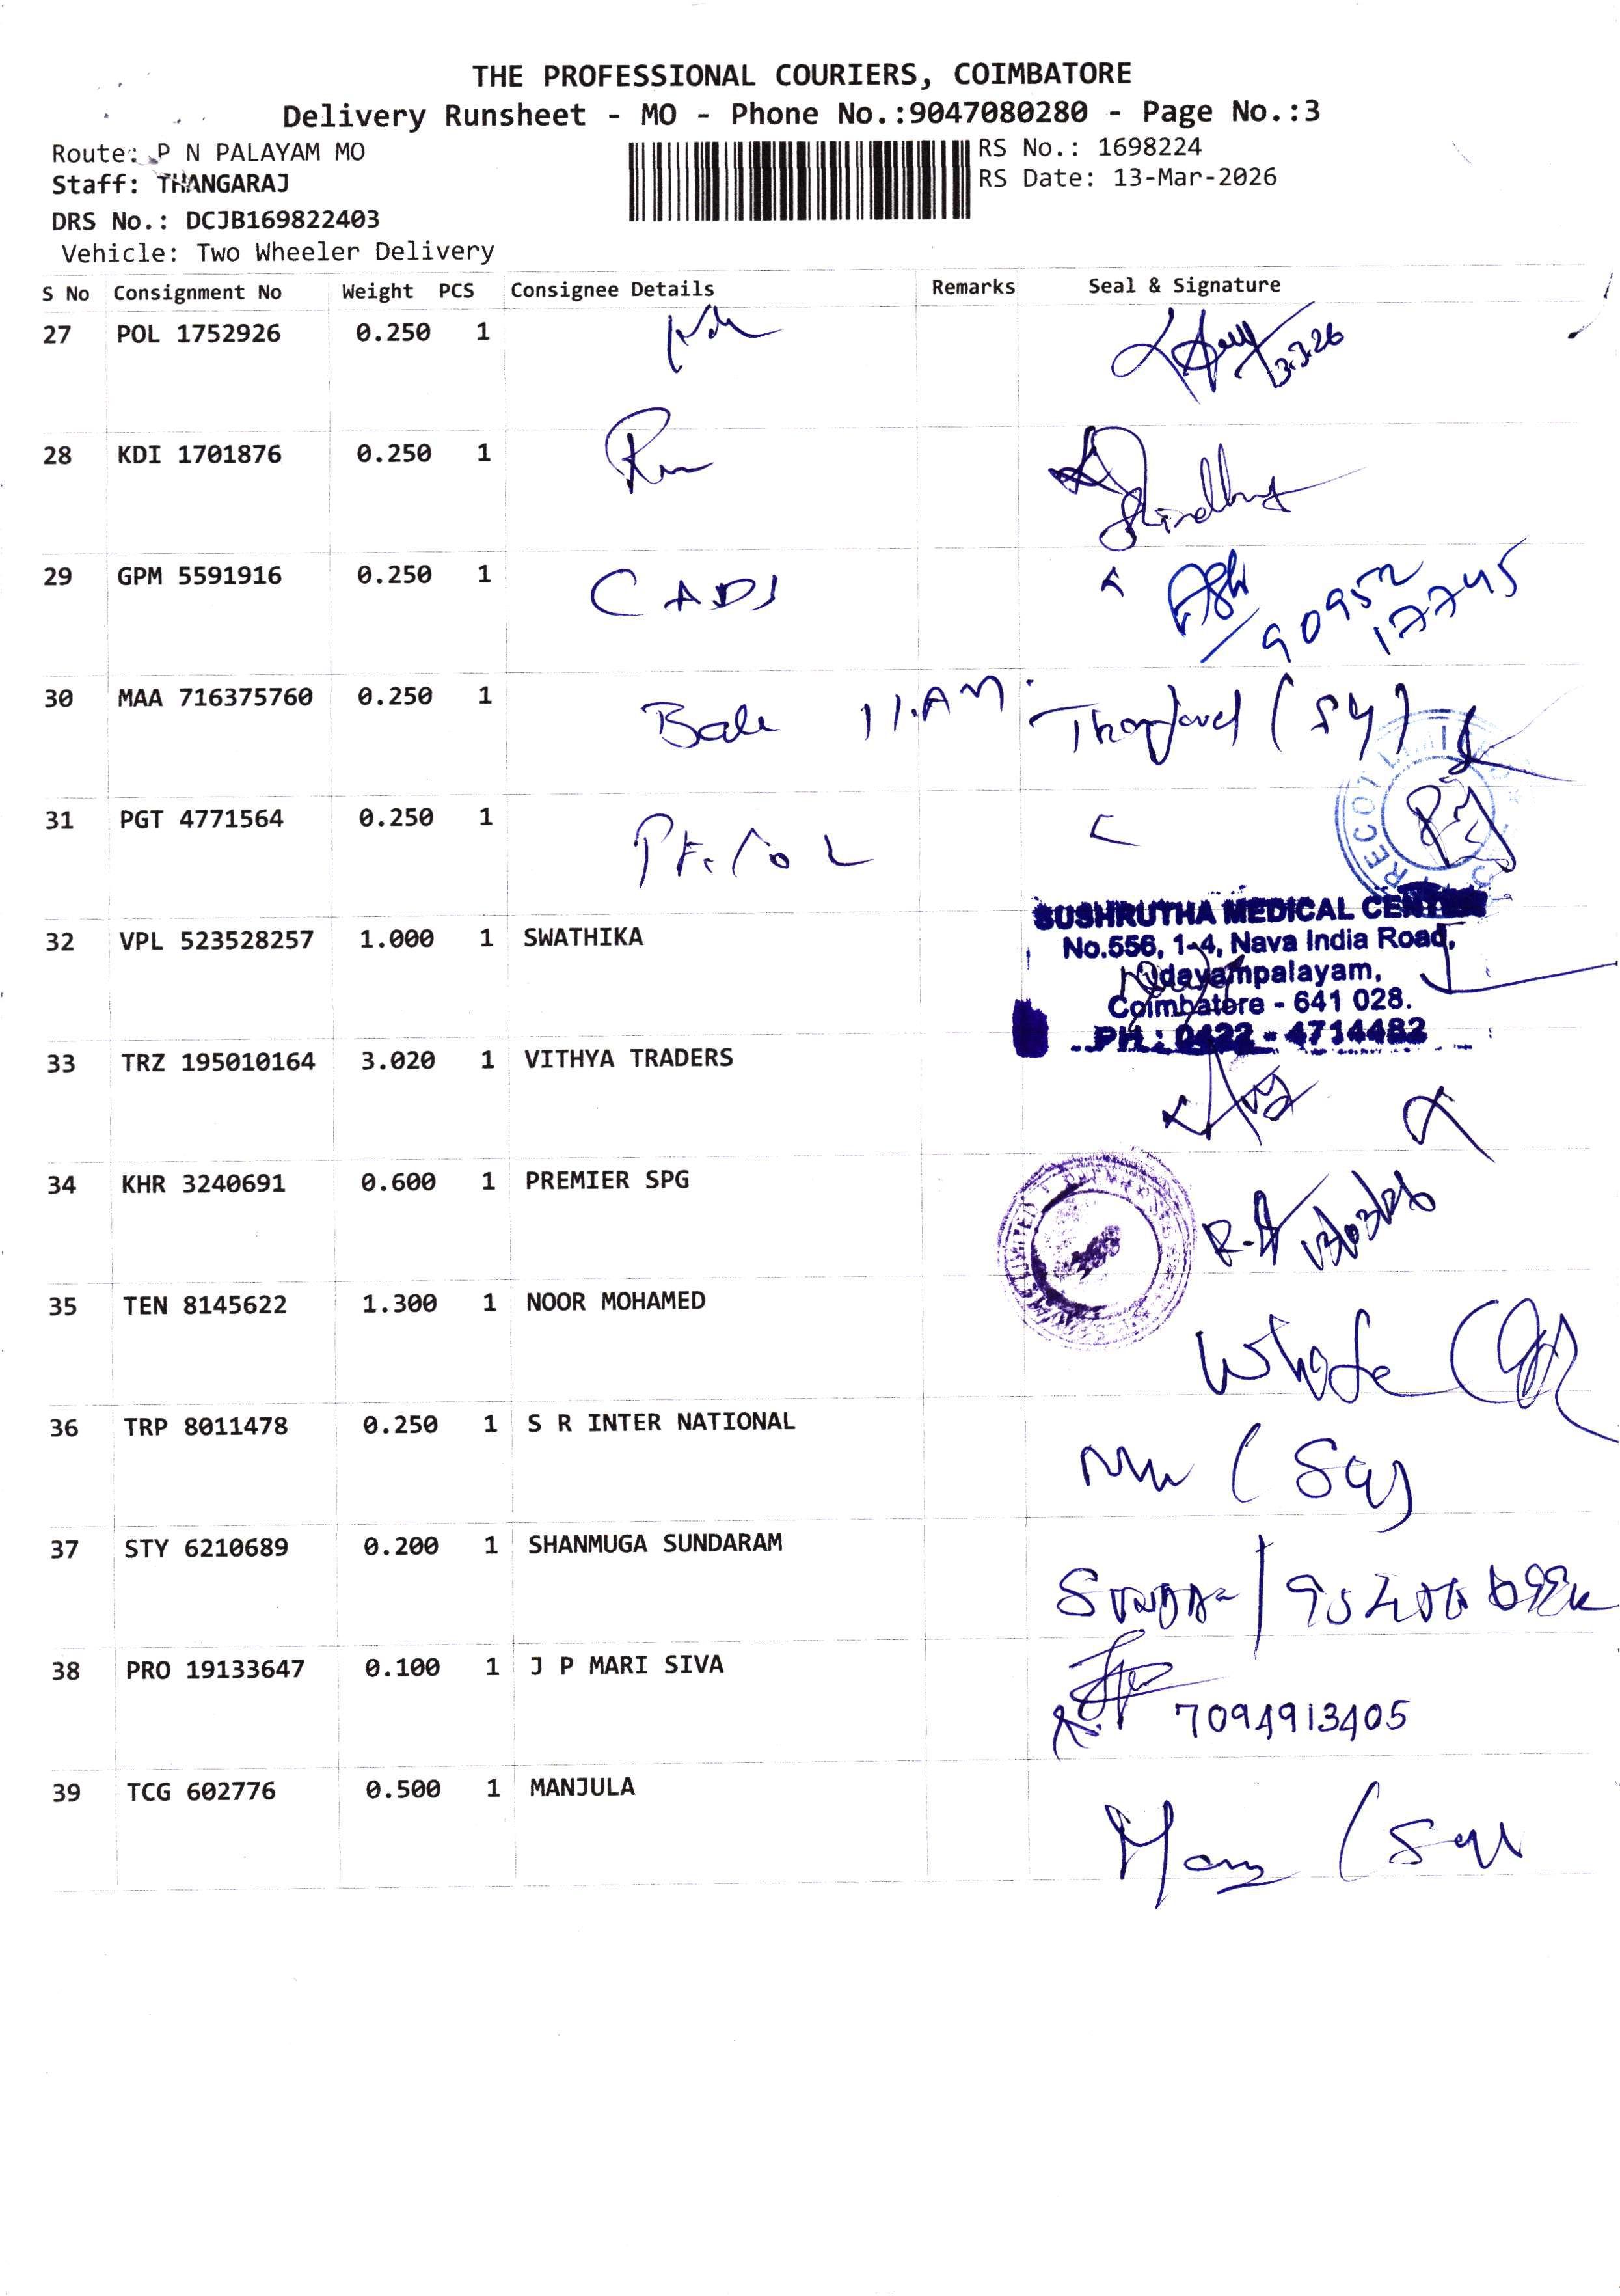 THE PROFESSIONAL COURIERS, COIMBATORE
Delivery Runsheet - MO - Phone No.:9047080280 - Page No.:3
Route: P N PALAYAM MO
RS No.: 1698224
Staff: THANGARAJ
RS Date: 13-Mar-2026
DRS No.: DCJB169822403
Vehicle: Two Wheeler Delivery
S No Consignment No Weight PCS Consignee Details Remarks Seal & Signature
27 POL 1752926 0.250 1
13.3.26
28 KDI 1701876 0.250 1
29 GPM 5591916 0.250 1 CADS
90952
17745
30 MAA 716375760 0.250 1 11.AM
31 PGT 4771564 0.250 1
SUSHRUTHA MEDICAL CENTER
32 VPL 523528257 1.000 1 SWATHIKA
No.556, 1-4, Nava India Road,
Udayampalayam,
Coimbatore - 641 028.
PH : 0422 - 4714482
33 TRZ 195010164 3.020 1 VITHYA TRADERS
34 KHR 3240691 0.600 1 PREMIER SPG
35 TEN 8145622 1.300 1 NOOR MOHAMED
36 TRP 8011478 0.250 1 S R INTER NATIONAL
37 STY 6210689 0.200 1 SHANMUGA SUNDARAM
38 PRO 19133647 0.100 1 J P MARI SIVA
7094913405
39 TCG 602776 0.500 1 MANJULA